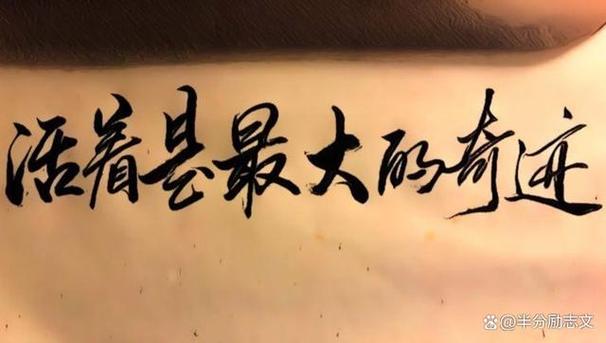 活着是最大的奇迹
@半分励志文